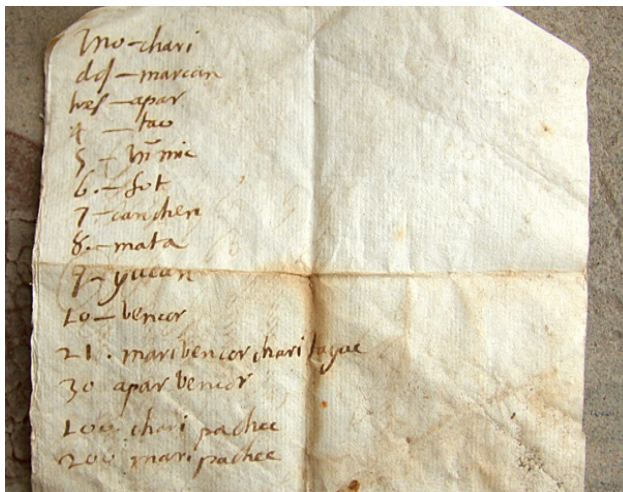 Uno-chari
dos-marian
tres-apar
4-tau
5-himic
6.-sut
7-canchen
8.-mata
9-yucan
10-bencor
21. maribencor chari tayac
30 apar bencor
100 chari pachac
200 mari pachac